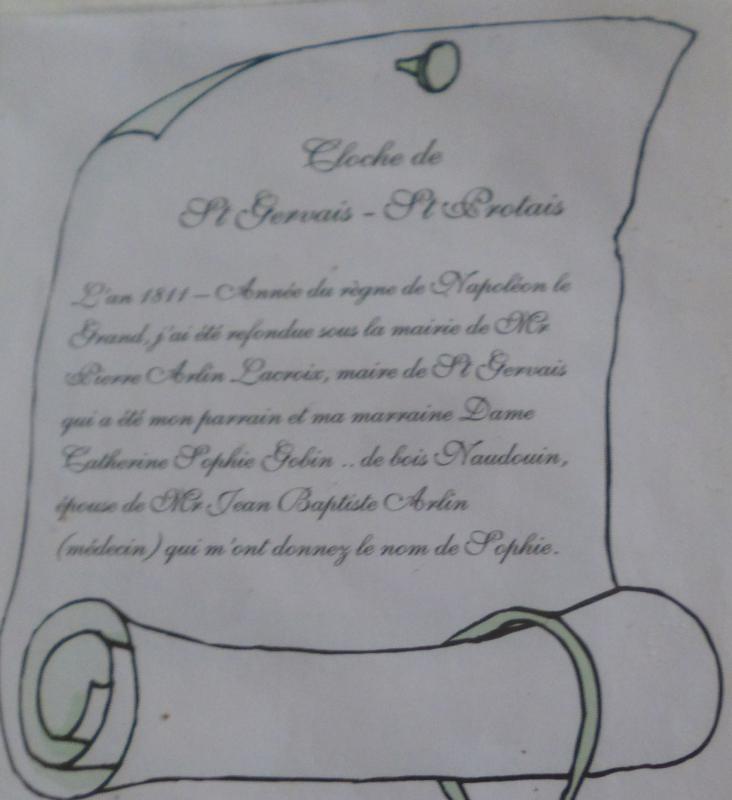 Cloche de
St Gervais - St Protais
L'an 1811 – Année du règne de Napoléon le
Grand, j'ai été refondue sous la mairie de Mr
Pierre Arlin Lacroix, maire de St Gervais
qui a été mon parrain et ma marraine Dame
Catherine Sophie Gobin .. de bois Naudouin,
épouse de Mr Jean Baptiste Arlin
(médecin) qui m'ont donnez le nom de Sophie.